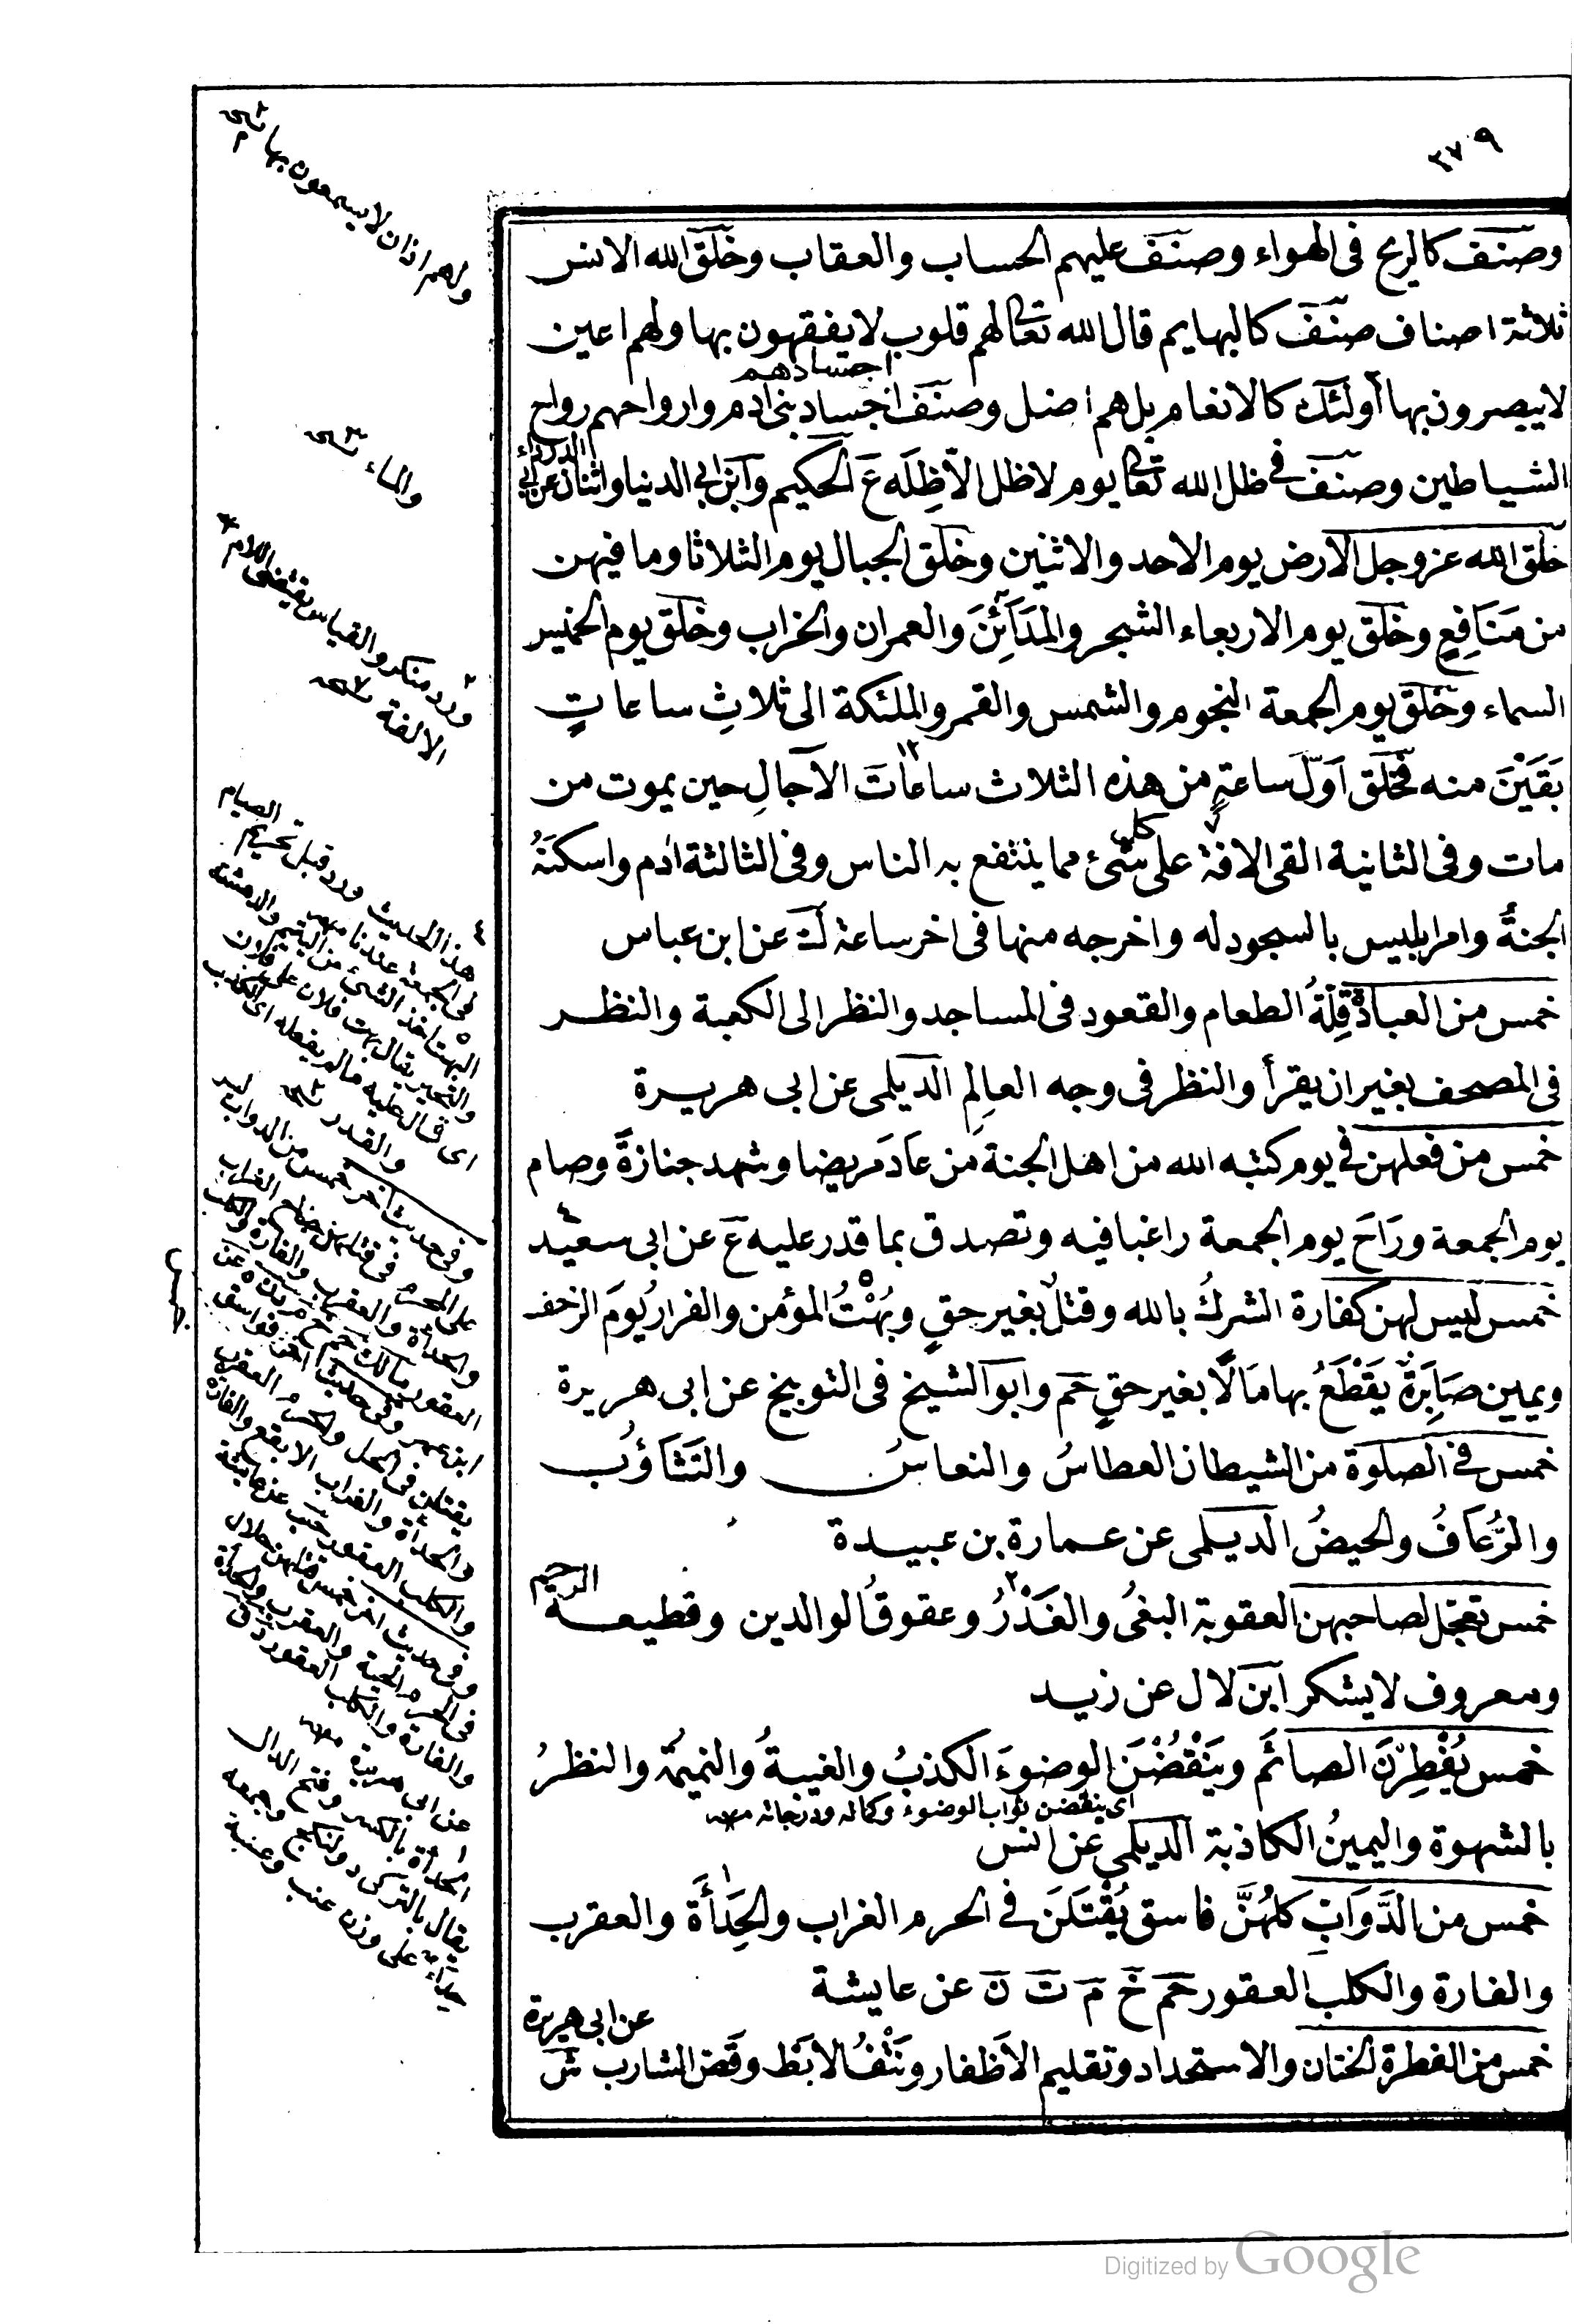 ٣٧٩
وصنف كالريح فى الهواء وصنف عليهم الحساب والعقاب وخلق الله الانس
ثلاثة اصناف صنف كالبهايم قال الله تعالى لهم قلوب لا يفقهون بها ولهم اعين
لا يبصرون بها اولئك كالانعام بل هم اضل وصنف اجساد بنى ادم وارواحهم رواح
اجسادهم
الشياطين وصنف فى ظل الله تعالى يوم لا ظل الا ظله ع الحكيم وابن ابى الدنيا واثنان عن ابى
الدرداء
خلق الله عز وجل الارض يوم الاحد والاثنين وخلق الجبال يوم الثلاثا وما فيهن
من مَنَافِعٍ وخلق يوم الاربعاء الشجر والمَدَآئِنَ والعمران والخراب وخلق يوم الخميس
السماء وخلق يوم الجمعة النجوم والشمس والقمر والملئكة الى ثلاثِ ساعاتٍ
بَقَيْنَ منه فخلق اَوّلَ ساعةٍ من هذه الثلاث ساعات الآجالِ حين يموت من
مات وفى الثانية القى الافة على كل شئ مما ينتفع به الناس وفى الثالثة ادم واسكنَهُ
الجنةَ وامر ابليس بالسجود له واخرجه منها فى اخر ساعة ك عن ابن عباس
خمس من العبادة قِلّةُ الطعام والقعود فى المساجد والنظر الى الكعبة والنظر
فى المصحف بغير ان يقرأ والنظر فى وجه العالِمِ الديلمى عن ابى هريرة
خمس من فعلهن فى يوم كتبه الله من اهل الجنة من عَادَ مريضا وشهد جنازةً وصام
يوم الجمعة ورَاحَ يوم الجمعة راغبا فيه وتصدق بما قدر عليه ع عن ابى سعيد
خمس ليس لهن كفارة الشركُ بالله وقتلٌ بغير حقٍ وبُهْتُ المؤمن والفرارُ يومَ الزحف
ويمين صَابِرَةٌ يَقْطَعُ بها مَالًا بغير حقٍ حم وابو الشيخ فى التوبيخ عن ابى هريرة
خمس فى الصلوة من الشيطان العطاسُ والنعاسُ والتَثَاؤُب
والرُّعَافُ والحيضُ الديلمى عن عمارة بن عبيدة
خمس تعجل لصاحبهن العقوبة البغىُ والغَدْرُ وعقوقُ الوالدين وقطيعة الرحيم
ومعروف لا يشكر ابن لال عن زيد
خمس يُفْطِرْنَ الصائم ويَنْقُضْنَ الوضوءَ الكذبُ والغيبةُ والنميمة والنظرُ
اى ينقضن ثواب الوضوء وكماله ودرجاته
بالشهوة واليمينُ الكاذبة الديلمى عن انس
خمس من الدَّوَابّ كلهُنَّ فاسق يُقْتَلْنَ فى الحرم الغراب والحِدَأَة والعقرب
والفارة والكلب العقور حم خ م ت ن عن عايشة
خمس من الفطرة الختان والاستحداد وتقليم الاظفار ونَتْفُ الابَط وقَص الشارب ش
عن ابى هريرة
ولهم اذان لا يسمعون بها
والماء
ورد منكر والقياس يقتضى اللام
الالفة
هذا الحديث ورد قبل تحريم الصيام
فى الجمعة عندنا
اى قال عليه ما لم يفعله اى الكذب
والقدر
وفى حديث اخر خمس من الدواب ليس
على المحرم فى قتلهن جناح الغراب
والحدأة والعقرب والفارة والكلب
العقور مالك حم خ م د ن ه عن
ابن عمر وفى حديث اخر خمس فواسق
يقتلن فى الحل والحرم العقرب
والحدأة والغراب الابقع والفارة
والكلب العقور حب عن عايشة
وفى حديث اخر خمس قتلهن حلال
فى الحرم الحية والعقرب والحدأة
والفارة والكلب العقور د ق
عن ابى هريرة
الحدأة بالكسر وفتح الدال
حدآء على وزن عنب وعنبة
Digitized by Google